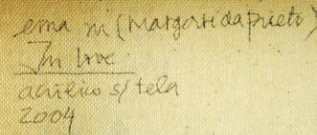 ema m (Margarida prieto)
In love
acrílico s/ tela
2004